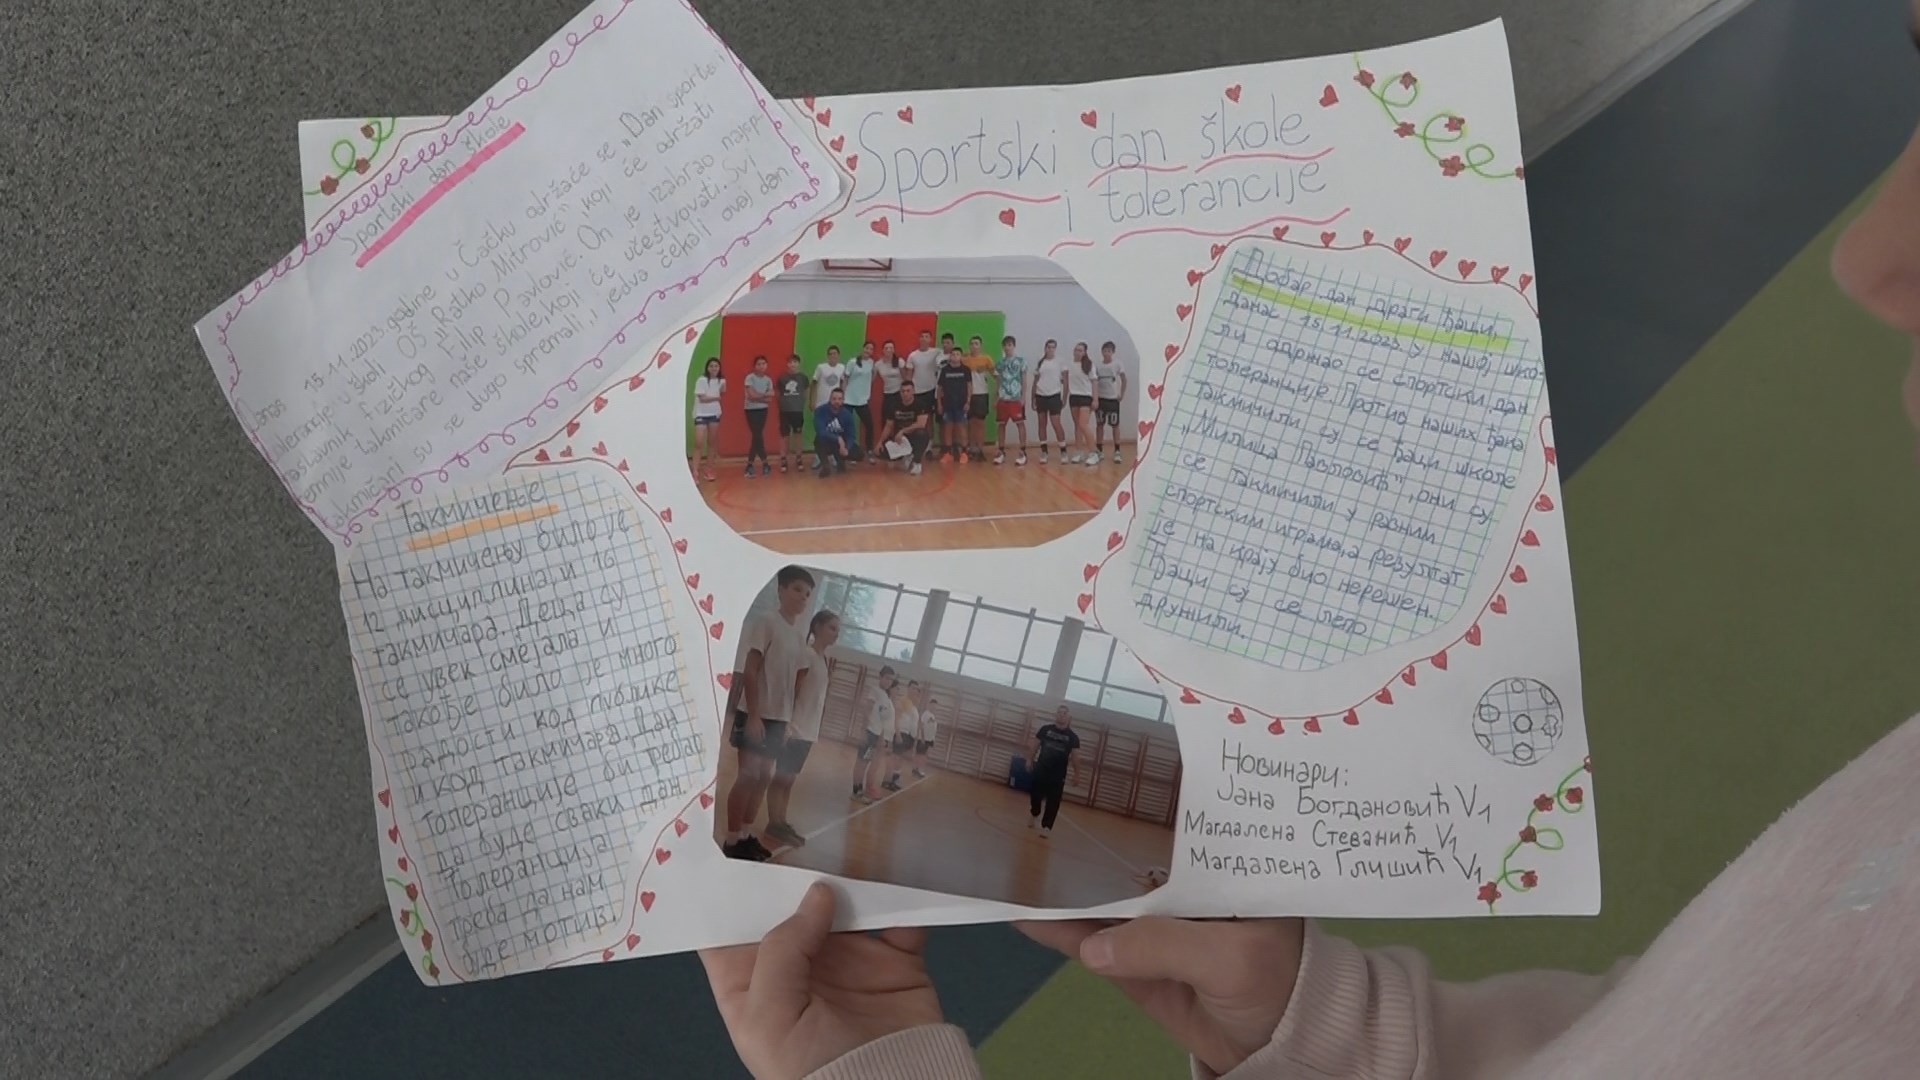 Sportski dan škole
i tolerancije
Sportski dan škole
Danas 15.11.2023.godine u Čačku održaće se „Dan sporta i
tolerancije u školi OŠ „Ratko Mitrović“, koji će održati
nastavnik fizičkog Filip Pavlović. On je izabrao najsp-
emnije takmičare naše škole, koji će učestvovati. Svi
takmičari su se dugo spremali, i jedva čekali ovaj dan
Такмичење
На такмичењу било је
12 дисциплина, и 16
такмичара. Деца су
се увек смејала и
такође било је много
радости код публике
и код такмичара. Дан
толеранције би требао
да буде сваки дан.
Толеранција
треба да нам
буде мотив.
Добар дан драги ђаци,
данас 15.11.2023. у нашој шко-
ли одржао се спортски дан
толеранције. Против наших ђака
такмичили су се ђаци школе
„Милица Павловић“, они су
се такмичили у разним
спортским играма, а резултат
је на крају био нерешен.
Ђаци су се лепо
дружили.
Новинари:
Јана Богдановић V1
Магдалена Стеванић V1
Магдалена Глишић V1